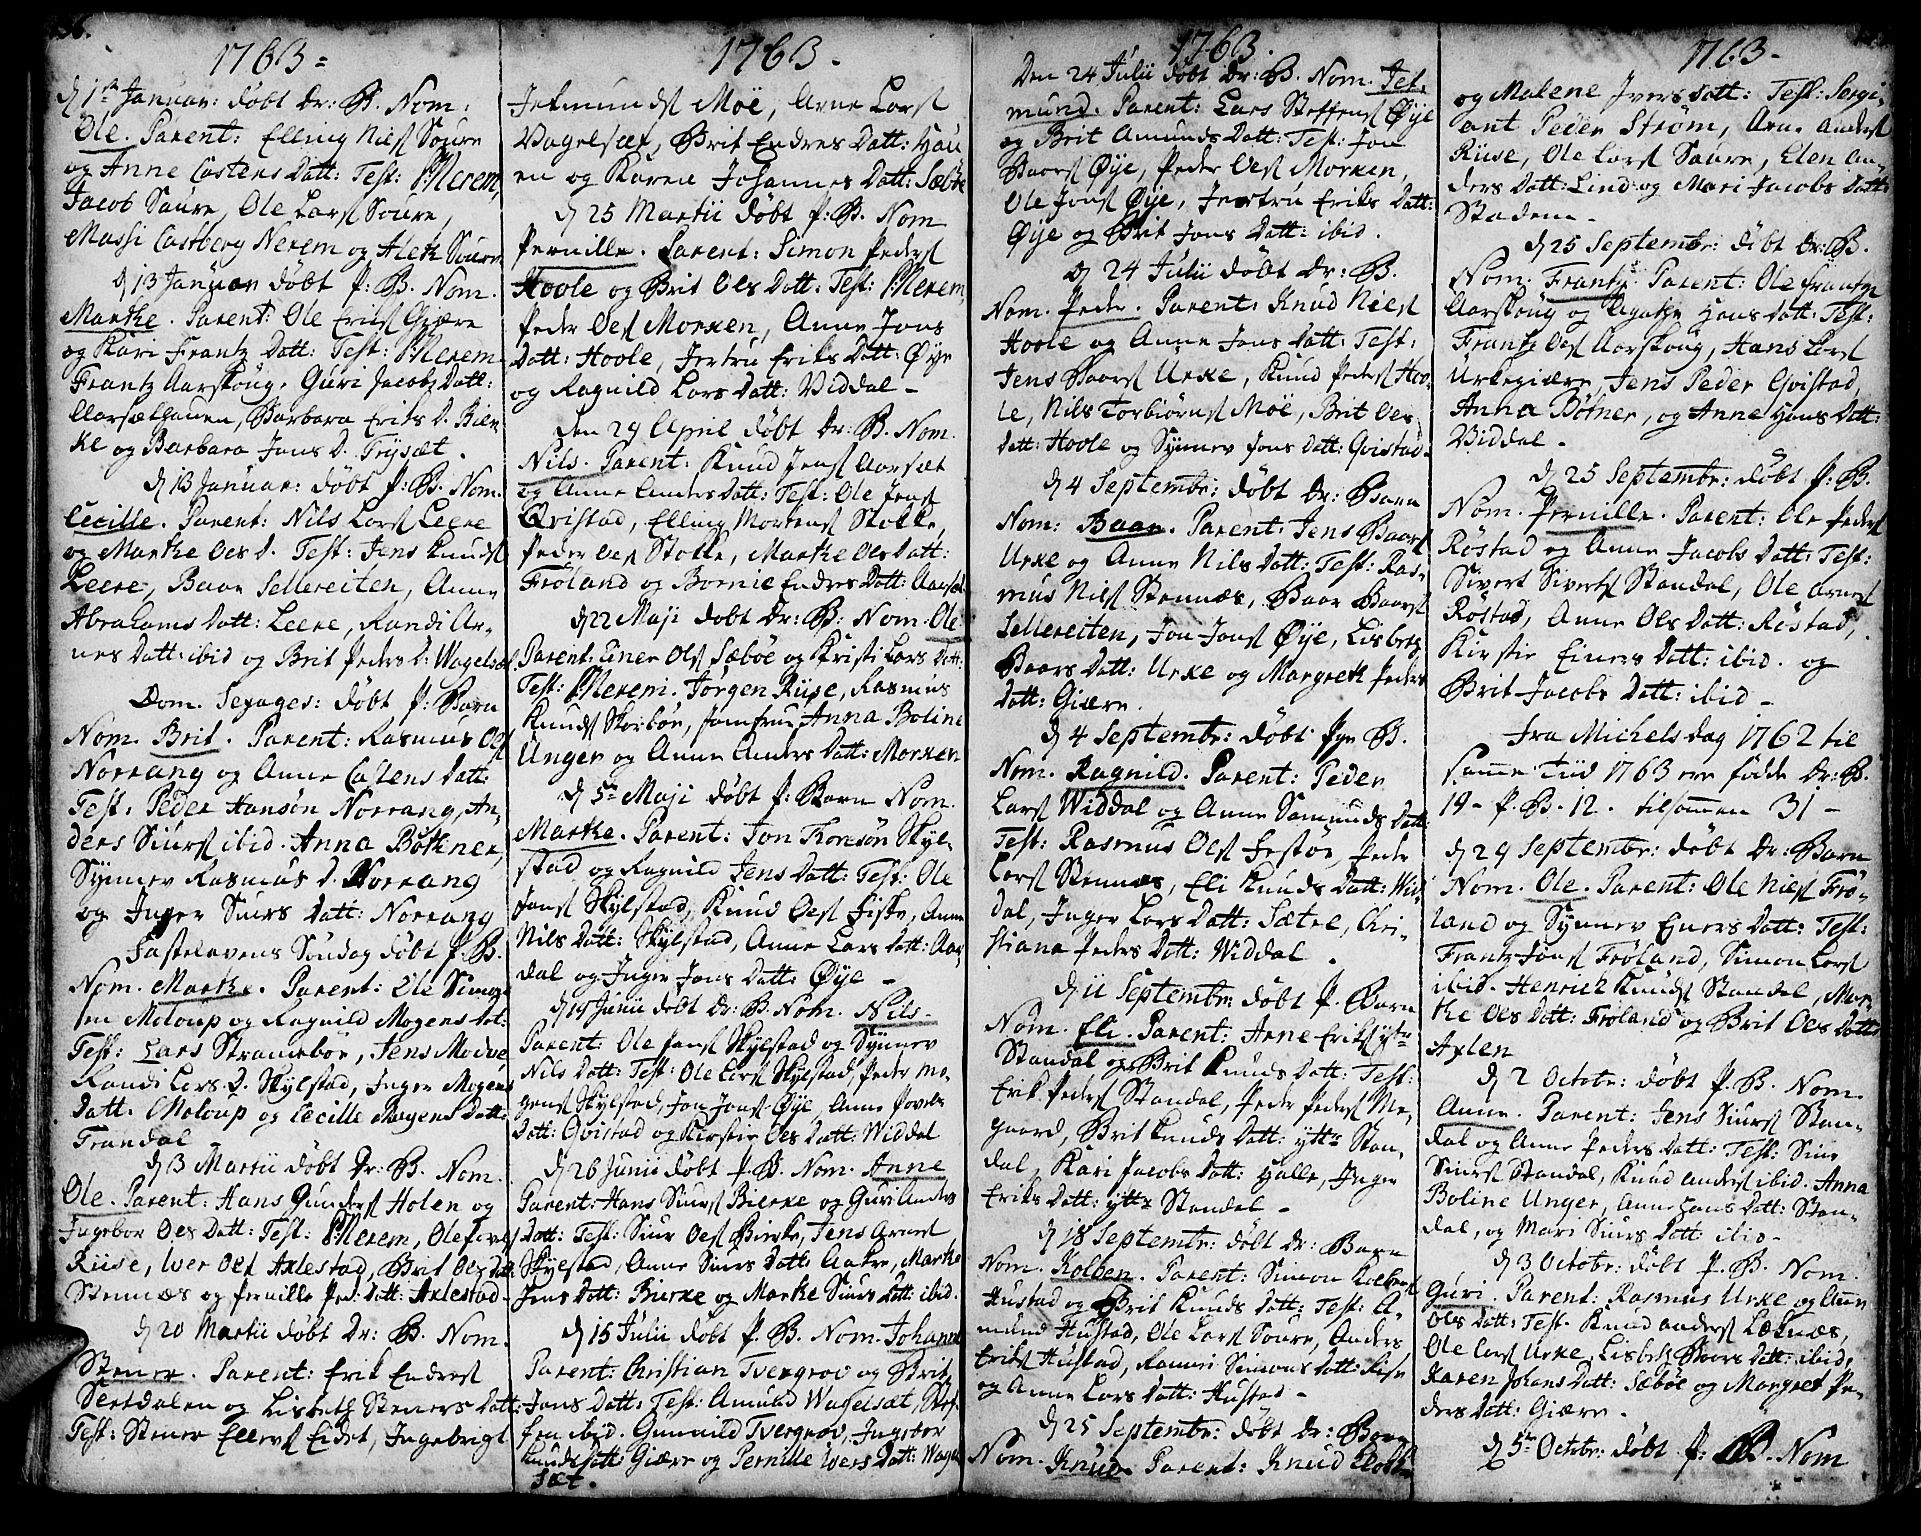 56.
1763 =
d 1ste Januar: døbt Dr: B. Nom:
Ole. Parent: Elling Niels Soure
og Anne Castens Datt: Test: Nerem
Jacob Saure, Ole Lars Soure,
Massi Castberg Nerem og Aleth Soure
d 13 Januar døbt P: B. Nom.
Marthe. Parent: Ole Eriks Giære
og Kari Frantz Datt: Test: Nerem
Frantz Aarskoug. Guri Jacobs Datt:
Aarsæthauen, Barbara Eriks D. Bier-
ke og Barbara Jons D. Trysæt.
d 13 Januar: døbt P: B. Nom.
Cecille. Parent: Nils Lars Leere
og Marthe Oles D. Test: Jens Knuds
Leere, Baar Sellereiten, Anne
Abrahams Datt: Leere, Randi Ar-
nes Datt: ibid og Brit Peders D: Wagelsæt
Dom. Sexages: døbt P: Barn
Nom. Brit. Parent: Rasmus Ols
Norrang og Anne Castens Datt:
Test: Peder Hansøn Norrang, An-
ders Siurs ibid. Anna Bøthner,
Synnev Rasmus D. Norrang
og Inger Siurs Datt: Norrang
Fastelavens Søndag døbt P. B.
Nom. Marthe. Parent: Ole Simon-
sen Moloup og Ragnild Mogens Dat:
Test: Lars Stranebøe, Jens Modve
Randi Lars D. Skylstad, Inger Mogens
Datt: Moloup og Cecille Mogens Datt:
Trandal
d 3 Martii døbt Dr: B. Nom.
Ole. Parent: Hans Gunders Holen og
Ingebor Oles Datt: Test: Nerem, Ole
Riise, Iver Ols Axlestad, Brit Oles Dat:
Stennæs og Pernille Ped: Datt: Axlestad-
d 20 Martii døbt Dr: B. Nom.
Stener. Parent: Erik Endres
Sertdalen og Lisbeth Steners Datt:
Test: Stener Ellevs Eidet, Ingebrigt
1763 -
Jetmunds Moe, Arne Lars
Vagelsæt, Brit Endres Datt: Hau
en og Karen Johannes Datt: Sæbøe
d 25 Martii døbt P: B. Nom
Pernille. Parent: Simon Peders
Hoole og Brit Oles Datt: Test: Nerem
Peder Oles Morken, Anne Jons
Datt: Hoole, Jertru Eriks Datt: Øye
og Ragnild Lars Datt: Viddal -
Den 24 April døbt Dr: B. Nom.
Nils. Parent: Knud Jens Aarsæt
og Anne Anders Datt: Test: Ole Jens
Qvistad, Elling Mortens Stokke,
Peder Oles Stokke, Marthe Oles Datt:
Frøland og Bornie Endres Datt: Aarsæt
d 22 Maji døbt Dr: B: Nom: Ole
Parent: Einer Ols Sæbøe og Kristi Lars Datt:
Test: Nerem. Jørgen Riise, Rasmus
Knuds Skorbøe, Jomfrue Anna Boline
Unger og Anne Anders Datt: Morken
d 5te Maji døbt P: Barn Nom.
Marthe. Parent: Jon Thoresøn Skyl-
stad og Ragnild Jens Datt: Test: Ole
Jons Skylstad, Knud Oles Fiske, Anne
Nils Datt: Skylstad, Anne Lars Datt: Aar-
dal og Inger Jons Datt: Øye -
d 19 Junii døbt Dr: B. Nom. Nils-
Parent: Ole Jans Skylstad og Synnev
Nils Datt: Test: Ole Lars Skylstad, Peder Mo-
gens Skylstad, Jon Jons Øye, Anne Povels
Datt: Qvistad og Kirstie Oles Datt: Widdal
d 26 Junii døbt P. B. Nom. Anne
Parent: Hans Siurs Bierke og Guri Anders
Datt: Test: Siur Oles Bierke, Jens Arnes
Skylstad, Anne Siurs Datt: Aakre, Marthe
Jens Datt: Bierke og Marthe Siurs Datt: ibid.
d 15 Julii døbt P. B. Nom. Johanne
Parent: Christian Tvergrov og Brit
Jons Datt: Test: Amund Wagelsæt, Stef-
fen ibid. Gunnild Tvergrov, Ingebor
Knuds Datt: Giære og Pernille Ivers Datt: Wagel
sæt.
1763.
Den 24 Julii døbt Dr: B. Nom. Jet-
mund. Parent: Lars Steffens Øye
og Brit Amunds Datt: Test: Jon
Baars Øye, Peder Oles Morken,
Ole Jons Øye, Jertru Eriks Datt:
Øye og Brit Jons Datt: ibid.
D 24 Julii døbt Dr: B.
Nom. Peder. Parent: Knud Niels
Hoole og Anne Jons Datt: Test:
Jens Baars Urke, Knud Peders Hoo-
le, Nils Torbiørns Moe, Brit Oles
Datt: Hoole og Synnev Jons Datt: Qvistad.
d 4 Septembr: døbt Dr: Barn
Nom: Baar. Parent: Jens Baars
Urke og Anne Nils Datt: Test: Ras-
mus Niels Stennæs, Baar Baars
Sellereiten, Jon Jons Øye, Lisbeth
Baars Datt: Urke og Margreth Peders
Datt: Giære.
d 4 Septembr: døbt Pge B.
Nom. Ragnild. Parent: Peder
Lars Widdal og Anne Samunds Datt:
Test: Rasmus Oles Festøe, Peder
Lars Stennæs, Eli Knuds Datt: Wid-
dal, Inger Lars Datt: Sætre, Chri-
stiana Peders Datt: Widdal.
d 11 Septembr: døbt P. Barn
Nom. Eli. Parent: Arne Eriks ytte
Standal og Brit Knuds Datt: Test:
Erik Peders Standal, Peder Peders Me-
gaard, Brit Knuds Datt: ytte Stan-
dal, Kari Jacobs Datt: Halle, Inger
Eriks Datt: ytte Standal -
d 18 Septembr: døbt Dr: Barn
Nom. Kolben. Parent: Simon Kolbens
Hustad og Brit Knuds Datt: Test: A-
mund Hustad, Ole Lars Soure, Anders
Eriks Hustad, Ranni Simons Datt: Riise
og Anne Lars Datt: Hustad -
d 25 Septembr: døbt Dr: Barn
Nom. Knud. Parent: Knud
1763 -
og Malene Ivers Datt: Test: Sergi-
ant Peder Strøm, Arne Anders
Riise, Ole Lars Saure, Elen An-
ders Datt: Lind og Mari Jacobs Datt:
Stadem -
d 25 Septembr: døbt Dr: B.
Nom: Frantz. Parent: Ole Frantz
Aarskoug og Agathe Hans Datt: Test:
Frantz Oles Aarskoug, Hans Lars
Urkegiære, Jens Peder Qvistad,
Anna Bøtner, og Anne Hans Datt:
Viddal -
d 25 Septembr: døbt P. B.
Nom. Pernille. Parent: Ole Peders
Røstad og Anne Jacobs Datt: Test:
Sivert Siverts Standal, Ole Arnes
Røstad, Anne Oles Datt: Røstad,
Kirstie Einers Datt: ibid. og
Brit Jacobs Datt: ibid -
Fra Michels dag 1762 til
samme Tiid 1763 ere fødde Dr: B.
19 - P. B. 12. tilsammen 31 -
d 29 Septembr: døbt Dr: Barn
Nom. Ole. Parent: Ole Niels Frø-
land og Synnev Eners Datt: Test:
Frantz Jons Frøland, Simon Lars
ibid. Henrich Knuds Standal, Mar-
the Oles Datt: Frøland og Brit Oles Datt:
Axlen
d 2 Octobr: døbt P. B. Nom.
Anne. Parent: Jens Siurs Stan-
dal og Anne Peders Datt: Test: Siur
Siurs Standal, Knud Anders ibid. Anna
Boline Unger, Anne Hans Datt: Stan-
dal, og Mari Siurs Datt: ibid -
d 3 Octobr: døbt P. B. Nom.
Guri. Parent: Rasmus Urke og Anne
Oles Datt: Test. Knud Anders Leknæs,
Ole Lars Urke, Lisbeth Baars Datt: ibid,
Karen Johans Datt: Sæbøe og Margret Pe-
ders Datt: Giære.
d 5te Octobr: døbt P: B. Nom